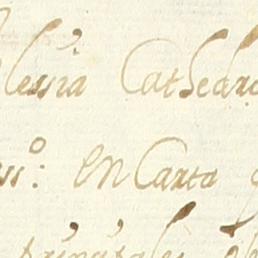 lessia Cathedra
ss.º: en Carta
prinçipales